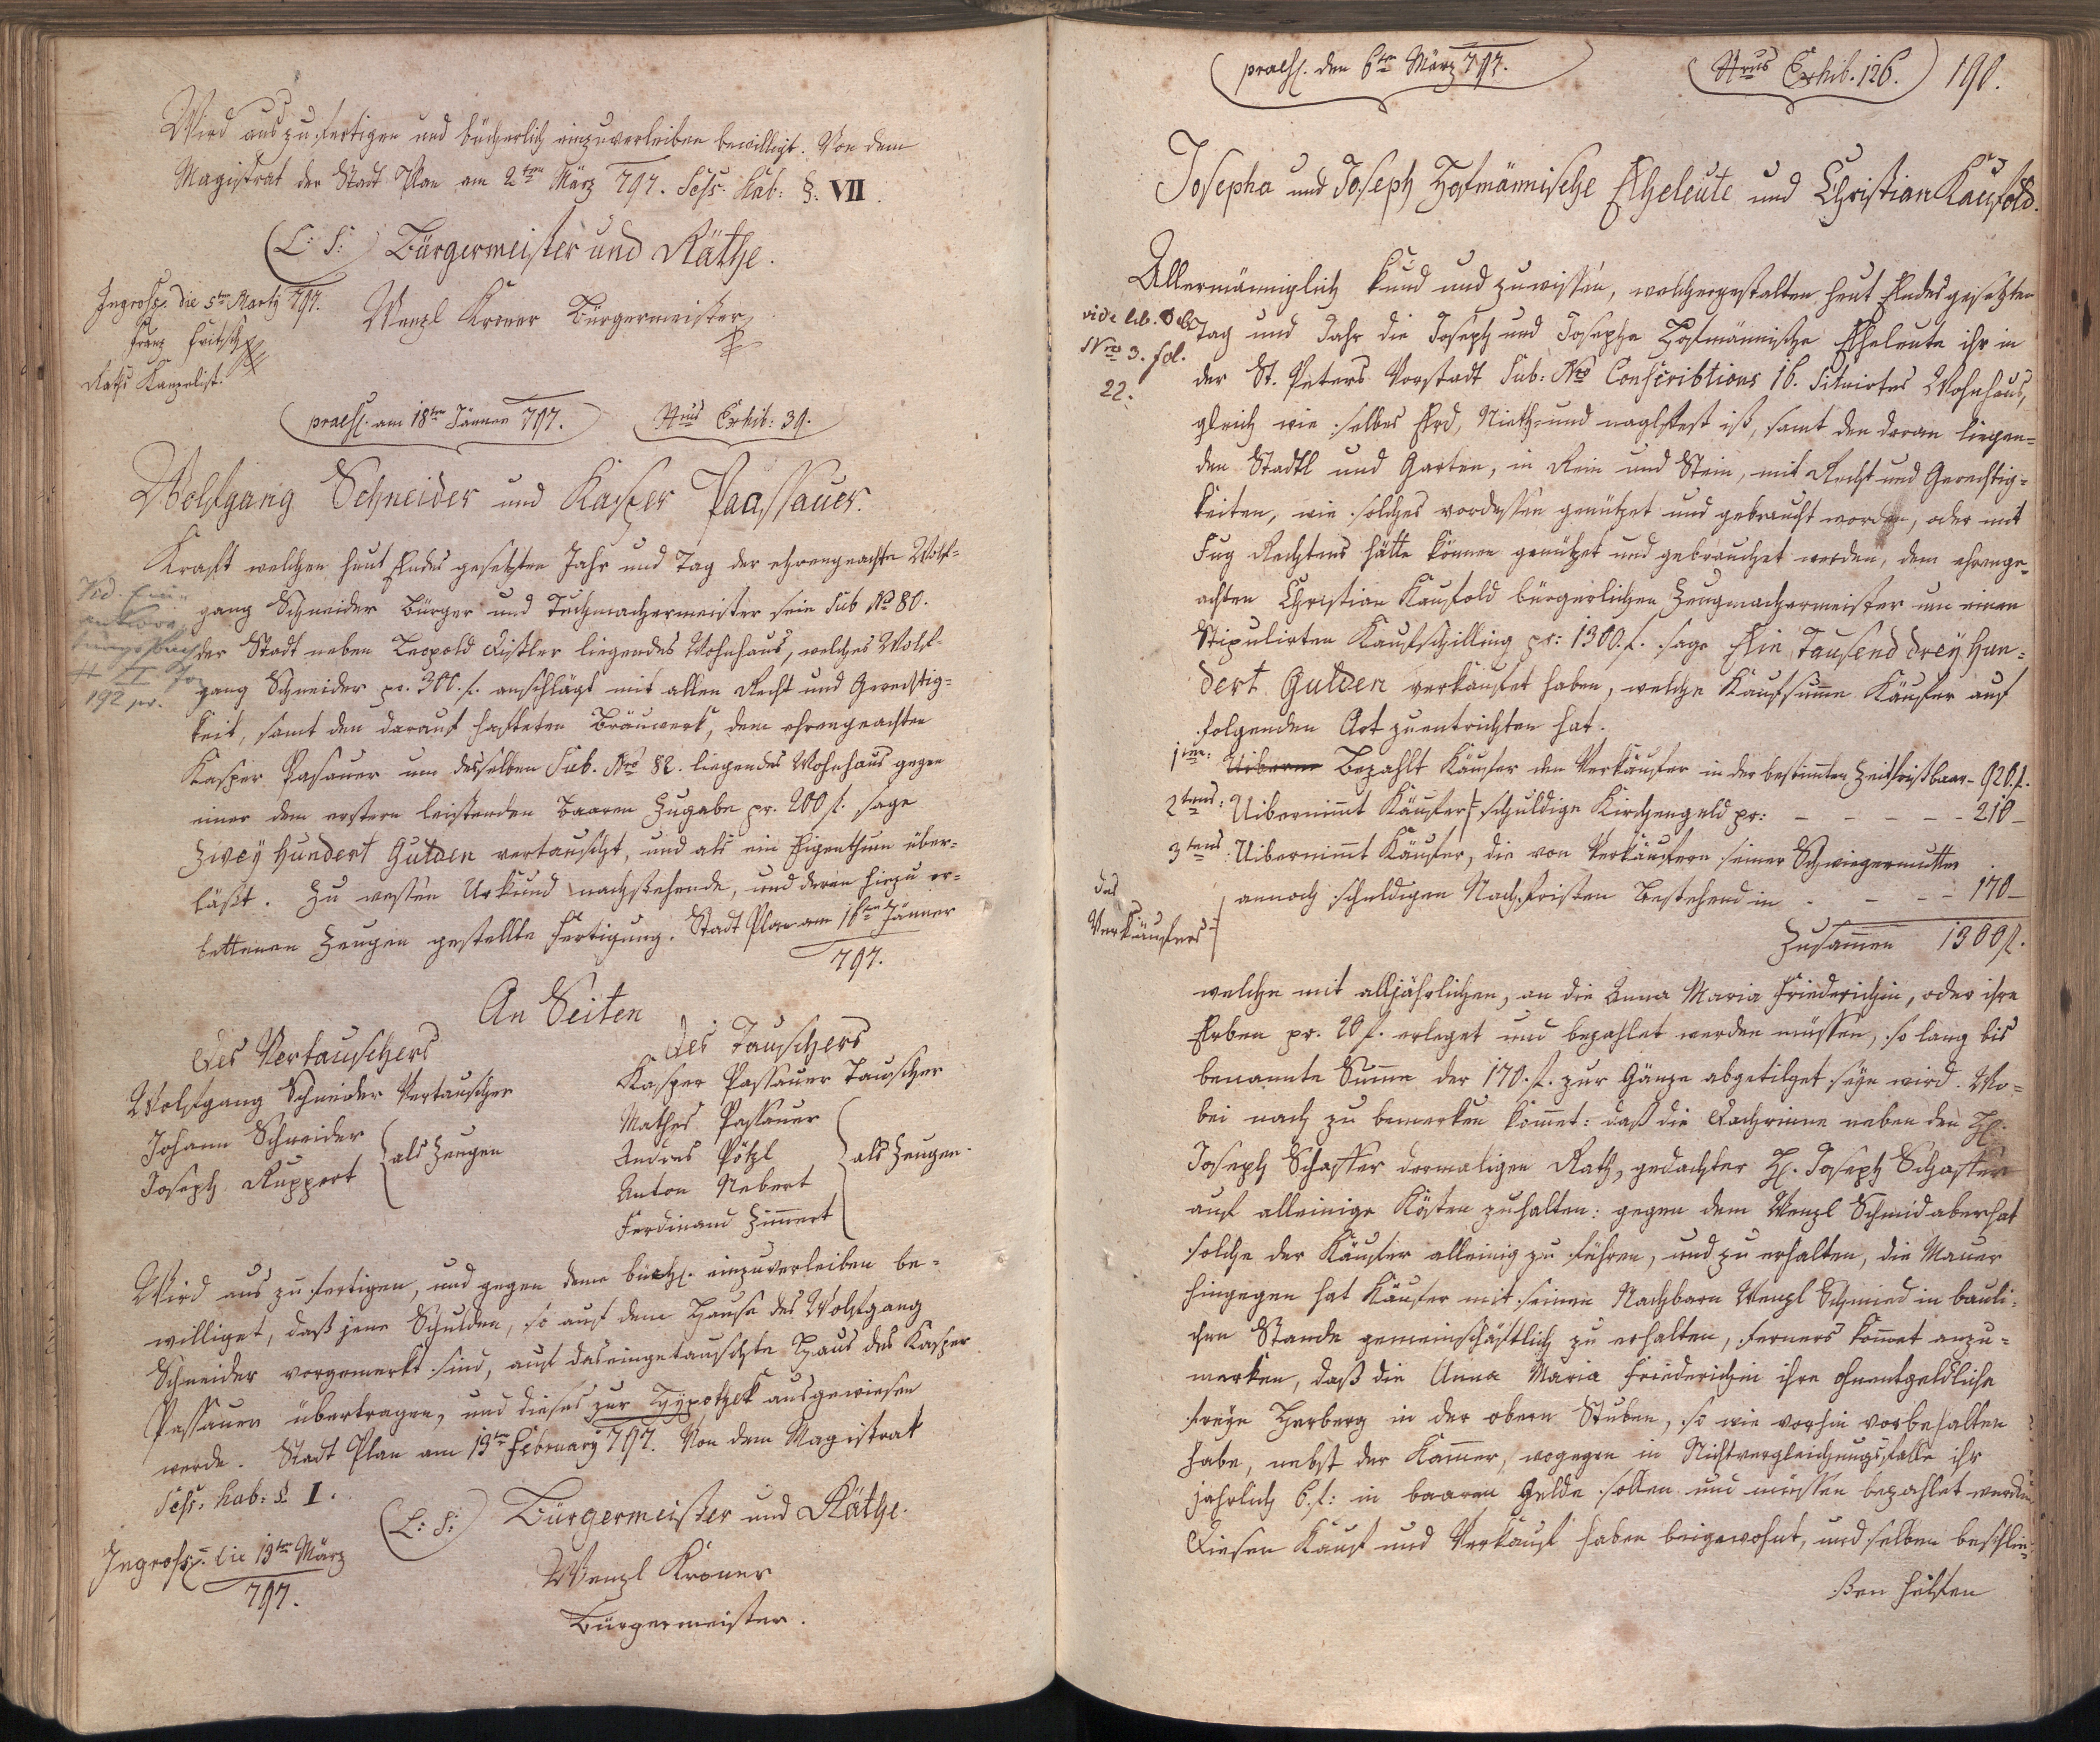 Wird auszufertigen und bücherlich einzuverleiben bewilligt. Von dem
Magistrat der Stadt Plan am 2ten März 797. Sess: Hab: §. VII.
(L: S:) Bürgermeister und Räthe.
Ingross. die 5ten Marty 797.
Wenzl Kroner Bürgermeister
Franz Fritsch
Raths Kanzelist.
praes. am 18ten Jänner 797.
Nrus Exhib: 39.
Wolfgang Schneider und Kasper Paassauer.
Kraft welchen heut Endes gesetzten Jahr und Tag der ehrengeachte Wolf-
gang Schneider Bürger und Tuchmachermeister sein Sub No 80.
der Stadt neben Leopold Distler liegendes Wohnhaus, welches Wolf-
gang Schneider pr. 300 f. anschlägt mit allen Recht und Gerechtig-
keit, samt den darauf hafteten Bräuwerk, dem ehrengeachten
192
Kasper Pasauer um desselben Sub. Nro 82. liegendes Wohnhaus gegen
einer dem erstern leistenden baaren Zugabe pr. 200 f. sage
Zwey Hundert Gulden vertauscht, und als ein Eigenthum über-
läßt. Zu wessen Urkund nachstehende, und deren hiezu er-
bettenen Zeugen gestellte Fertigung. Stadt Plan am 16ten Jänner
797.
An Seiten
Des Vertauschers
Wolfgang Schneider Vertauscher
Johann Schneider
Joseph Ruppert
als Zeugen
Des Tauschers
Kasper Passauer Tauscher
Mathes Passauer
Andres Pötzl
Anton Nebert
Ferdinand Zimmert
als Zeugen.
Wird aus zu fertigen, und gegen deme büchl. einzuverleiben be-
williget, daß jene Schulden, so auf dem Hause des Wolfgang
Schneider vorgemerkt sind, auf das eingetauschte Haus des Kasper
Passauer übertragen, und dieses zur Hypothek ausgewiesen
werde. Stadt Plan am 13ten February 797. Von dem Magistrat
Sess: hab: § I.
(L: S:) Bürgermeister und Räthe.
Ingross. die 13ten März
797.
Wenzl Kroner
Bürgermeister.
praes. den 6ten März 797.
Nrus Exhib. 126.
190.
Josepha und Joseph Hofmännische Eheleute und Christian Kaufold.
Allermänniglich kund und zuwissen, welchergestalten heut Endes gesetzten
vide lib.
Nro 3. fol.
22.
Tag und Jahr die Joseph und Josepha Hofmännische Eheleute ihr in
der St. Peters Vorstadt Sub: Nro Conscribtions 16. situirtes Wohnhaus,
gleich wie selbes Erd, Nieth- und naglfest ist, samt den daran liegen-
den Stadtl und Garten, in Rein und Stein, mit Recht und Gerechtig-
keiten, wie solches vordessen genützet und gebraucht worden, oder mit
Fug Rechtens hätte können genützet und gebrauchet werden, dem ehrenge-
achten Christian Kaufold bürgerlichen Zeugmachermeister um einen
Stipulirten Kaufschilling pr: 1300. f. sage Ein Tausend drey Hun-
dert Gulden verkaufet haben, welche Kaufsumme Käufer auf
folgenden Art zuentrichten hat.
1tens: Bezahlt Käufer den Verkäufer in der bestimmten Zeitfrist baar - 920. f.
2tens: Uibernimmt Käufer schuldige Kirchengeld pr: - - - - - 210 -
3tens: Uibernimmt Käufer, die von Verkäufern seiner Schwiegermutter
annoch schuldigen Nachfristen bestehend in - - - - 170 -
des
Verkäufers
Zusammen 1300 f.
welche mit alljährlichen, an die Anna Maria Friederichin, oder ihre
Erben pr. 20 f. erleget und bezahlet werden müssen, so lang bis
benannte Summe der 170. f. zur Gänze abgetilget seyn wird. Wo-
bei noch zu bemerken kommet: daß die Dachrinne neben den H.
Joseph Schaffer dermaligen Rath, gedachter H. Joseph Schaffer
auf alleinige Kösten zuhalten: gegen dem Wenzl Schmid aber hat
solche der Käufer alleinig zu führen, und zu erhalten, die Mauer
hingegen hat Käufer mit seinen Nachbarn Wenzl Schmied in bauli-
chen Stande gemeinschäftlich zu erhalten, ferners kommet anzu-
merken, daß die Anna Maria Friederichin ihre ohnentgeldliche
freye Herberg in der obern Stuben, so wie vorhin vorbehalten
habe, nebst der Kammer, wogegen in Nichtvergleichungsfalle ihr
jährlich 6. f: in baaren Gelde sollen und müssen bezahlet werden
Diesen Kauf und Verkauf haben beigewohnt, und selben beschlie-
ßen helfen